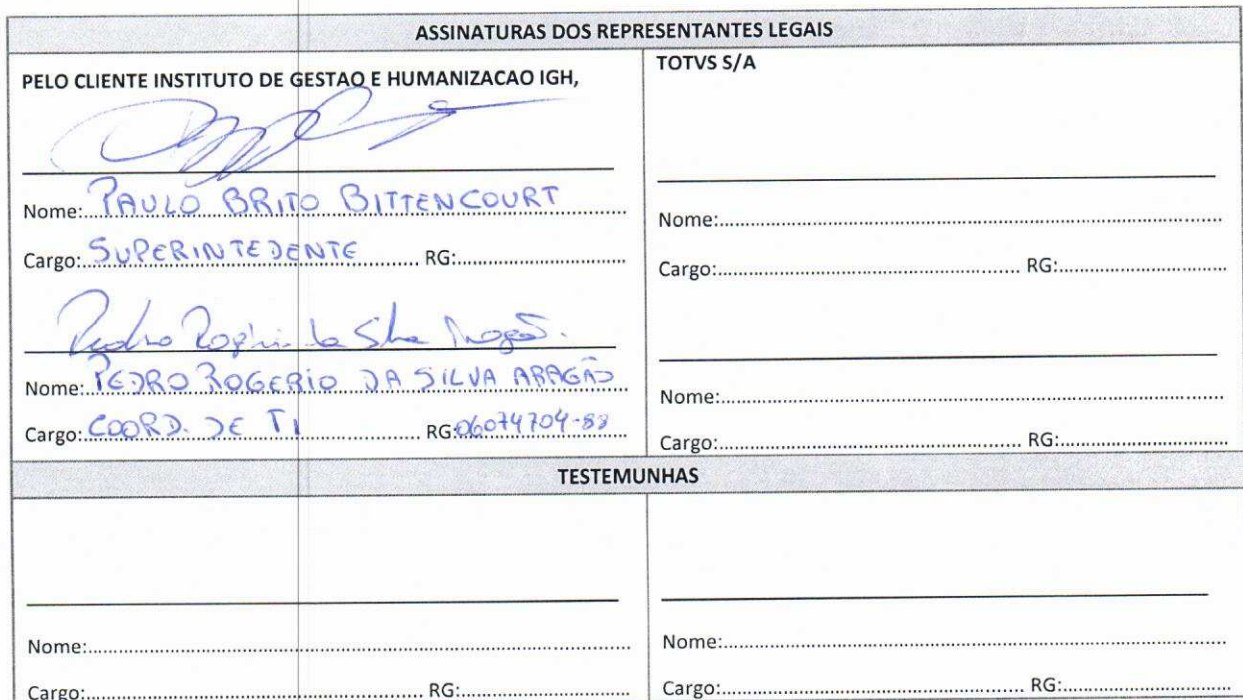 ASSINATURAS DOS REPRESENTANTES LEGAIS
PELO CLIENTE INSTITUTO DE GESTAO E HUMANIZACAO IGH,
Nome: PAULO BRITO BITTENCOURT
Cargo: SUPERINTEDENTE RG:
Pedro Rogério da Silva Aragão.
Nome: PEDRO ROGERIO DA SILVA ARAGÃO
Cargo: COORD. DE TI RG: 06074704-88
TOTVS S/A
Nome:
Cargo: RG:
Nome:
Cargo: RG:
TESTEMUNHAS
Nome:
Cargo: RG:
Nome:
Cargo: RG: